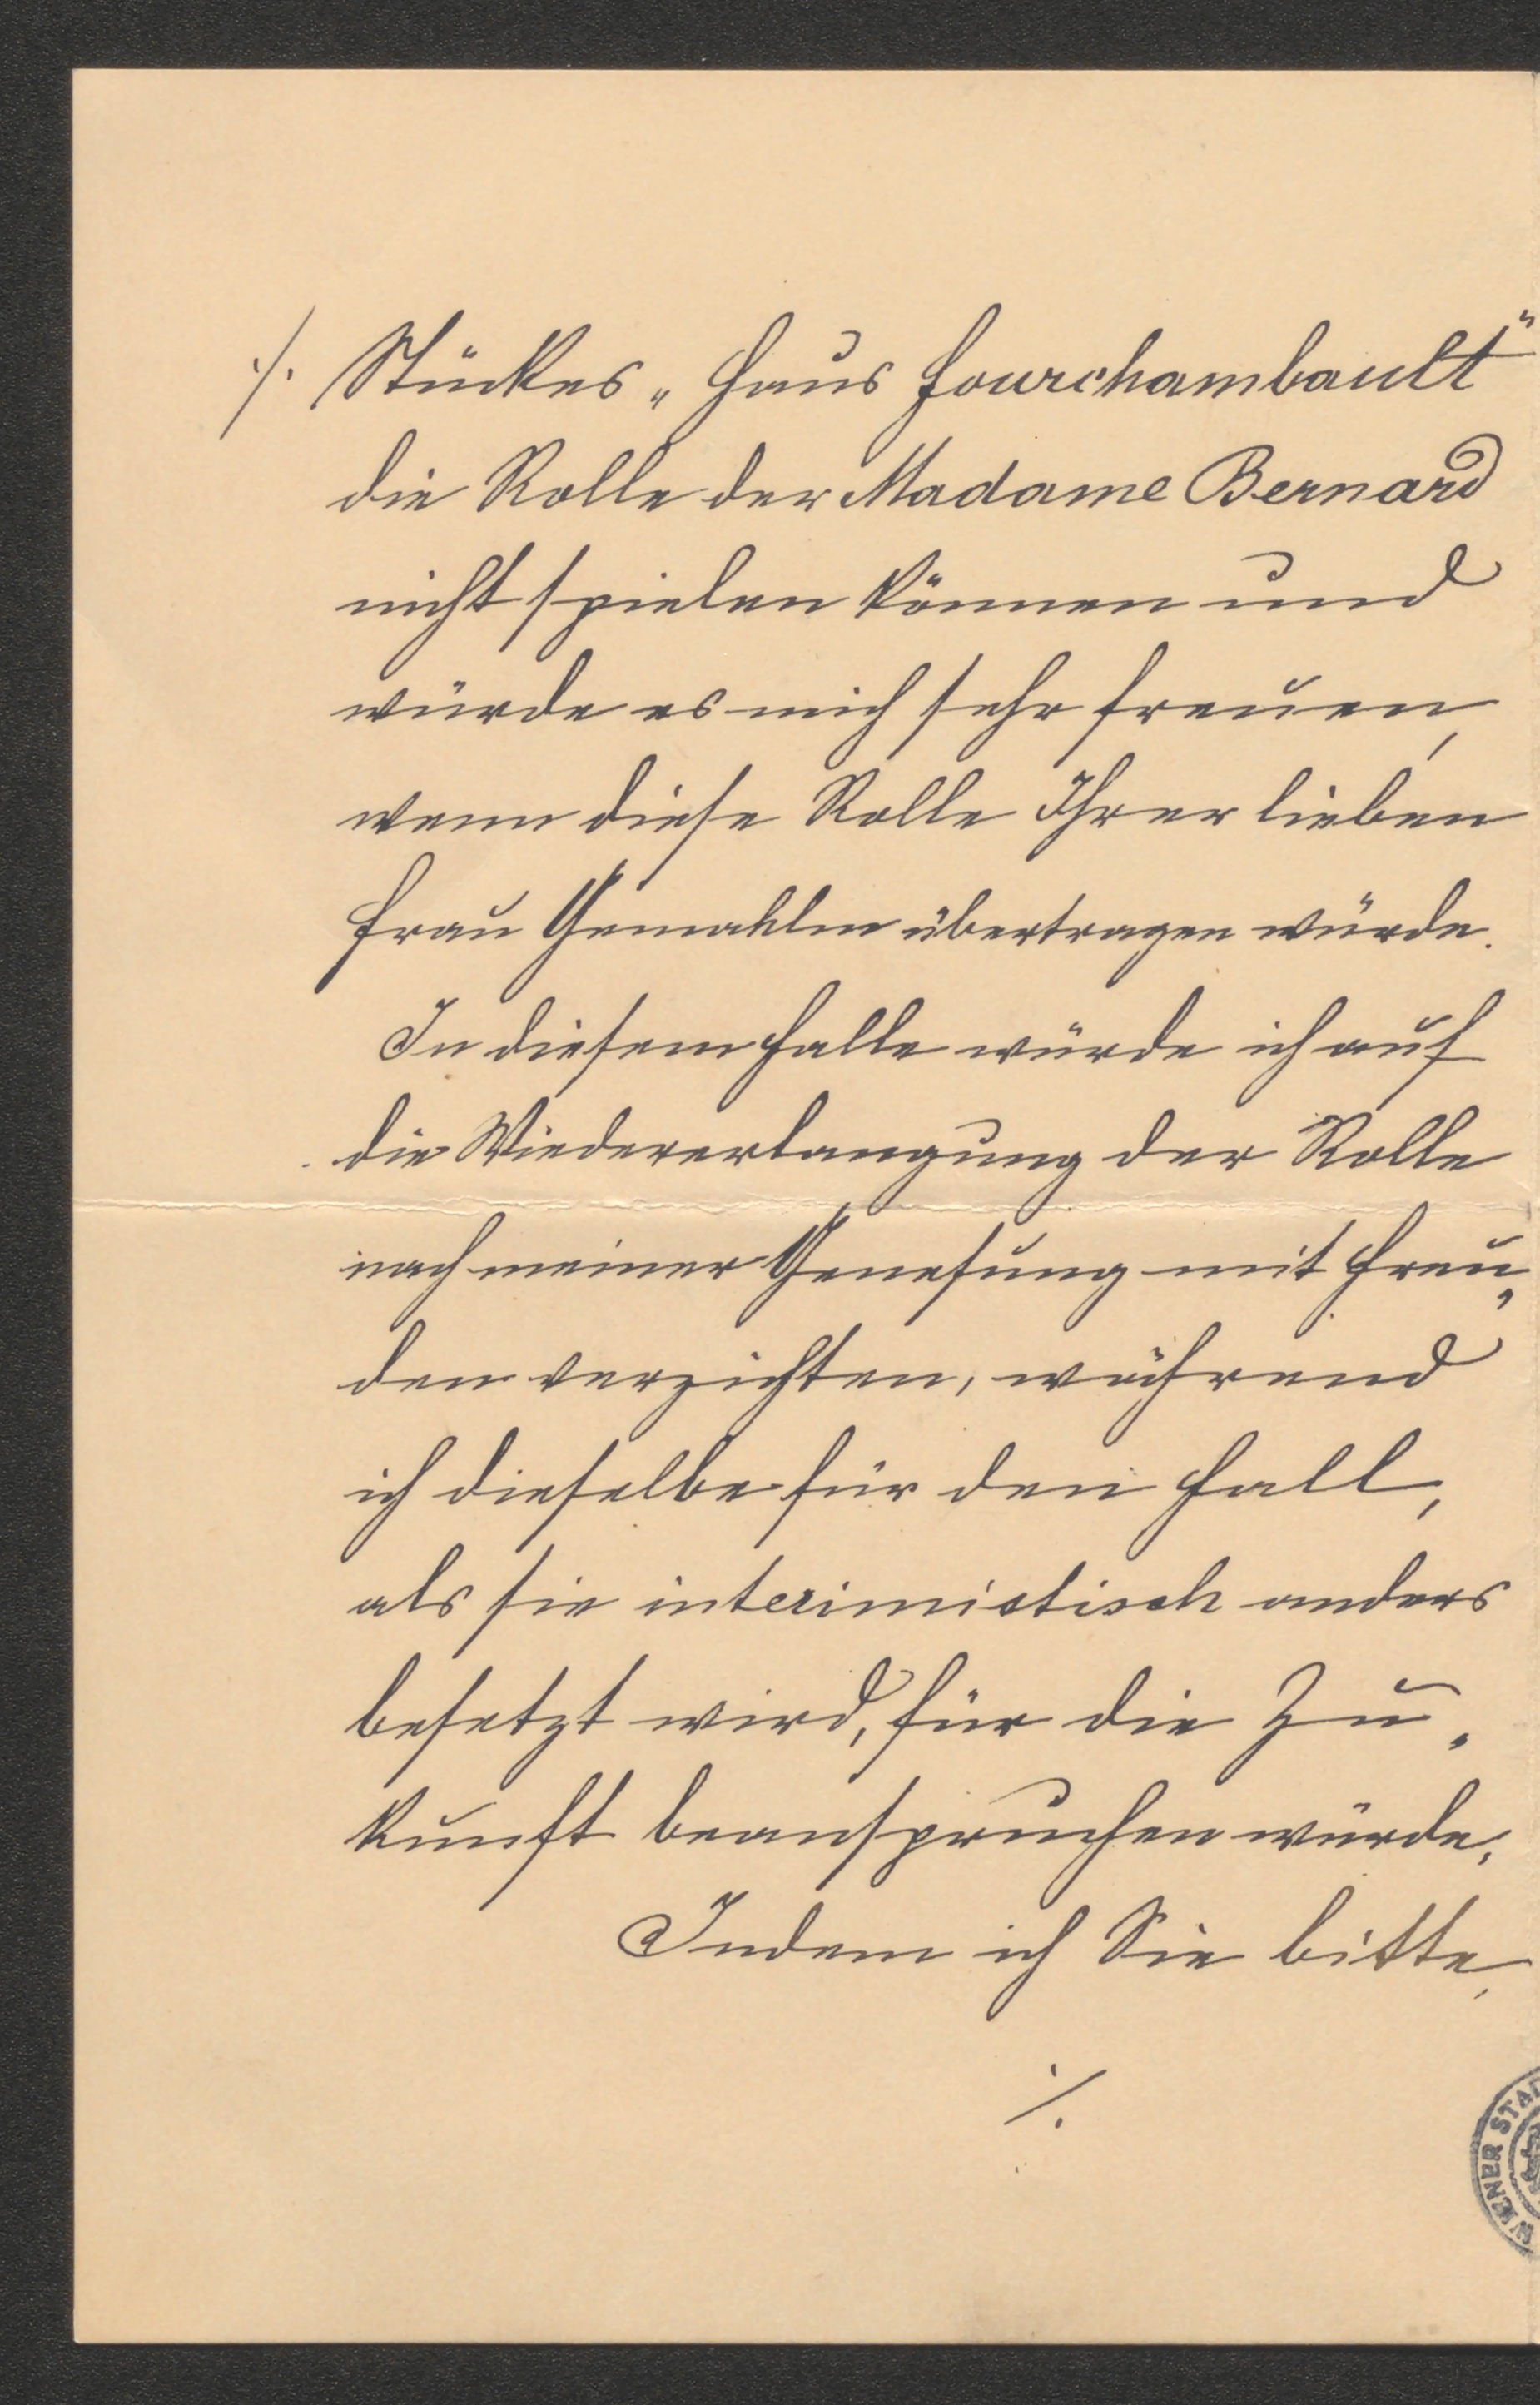 ./. Stückes „Haus Fourchambault"
die Rolle der Madame Bernard
nicht spielen können und
würde es mich sehr freuen,
wenn diese Rolle Ihrer lieben
Frau Gemahlin übertragen würde.
In diesem Falle würde ich auf
die Wiedererlangung der Rolle
nach meiner Genesung mit Freu„
den verzichten, während
ich dieselbe für den Fall,
als sie interimistisch anders
besetzt wird, für die Zu„
kunft beanspruchen würde.
Indem ich Sie bitte,
./.
WIENER STAD